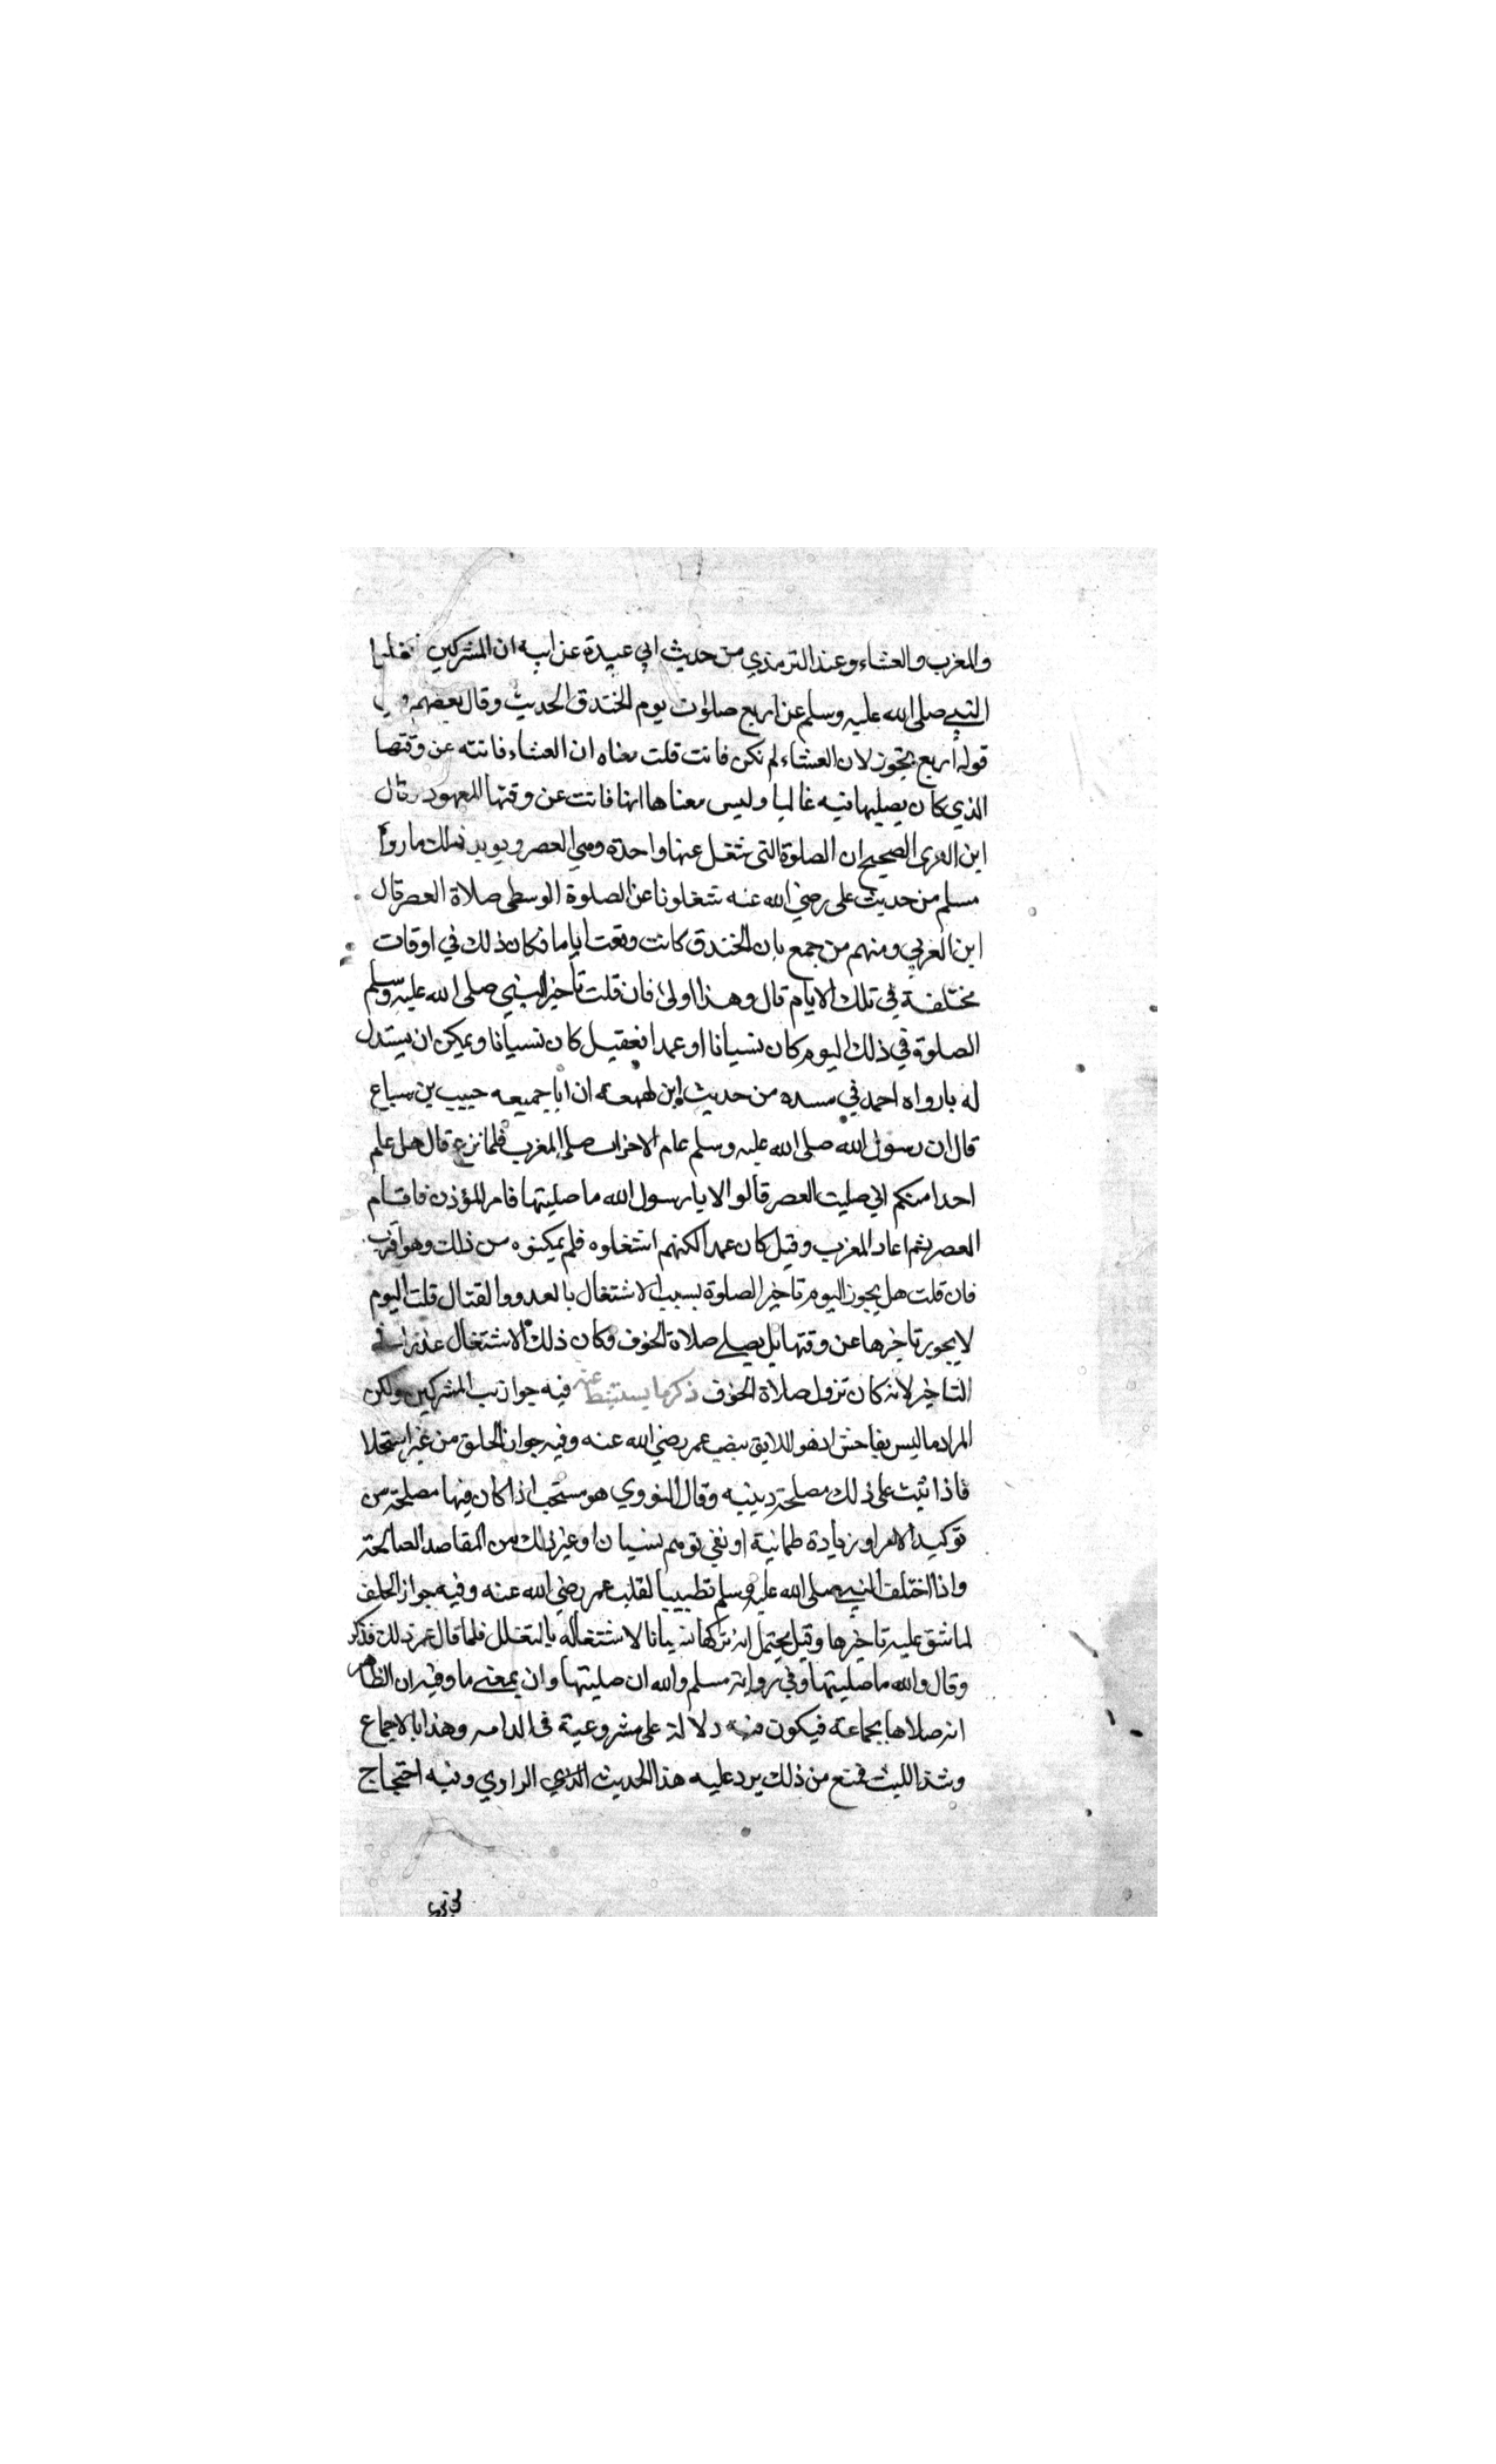 والمغرب والعشاء وعند الترمذي من حديث ابي عبيدة عن ابيه ان المشركين شغلوا
النبي صلى الله عليه وسلم عن اربع صلوات يوم الخندق الحديث وقال بعضهم وفي
قوله اربع تجوز لان العشاء لم تكن فاتت قلت معناه ان العشاء فاتته عن وقتها
الذي كان يصليها فيه غالبا وليس معناها انها فاتت عن وقتها المعهود وقال
ابن العربى الصحيح ان الصلوة التى شغل عنها واحدة وهي العصر ويويد ذلك ما رواه
مسلم من حديث على رضي الله عنه شغلونا عن الصلوة الوسطى صلاة العصر قال
ابن العربي ومنهم من جمع بان الخندق كانت وقعت اياما فكان ذلك في اوقات
مختلفة في تلك الايام قال وهذا اولى فان قلت تأخير النبي صلى الله عليه وسلم
الصلوة في ذلك اليوم كان نسيانا او عمدا فقيل كان نسيانا ويمكن ان يستدل
له بارواه احمد في مسنده من حديث ابن لهيعة ان ابا جميعه حبيب بن سباع
قال ان رسول الله صلى الله عليه وسلم عام الاحزاب صلى المغرب فلما نزع قال هل علم
احدا منكم اني صليت العصر قالوا لا يا رسول الله ما صليتها فامر المؤذن فاقام
العصر ثم اعاد المغرب وقيل كان عمدا لكنهم اشتغلوه فلم يمكنوه من ذلك وهو اقرب
فان قلت هل يجوز اليوم تاخير الصلوة بسبب الاشتغال بالعدو والقتال قلت اليوم
لا يجوز تاخيرها عن وقتها بل يصلى صلاة الخوف وكان ذلك الاشتغال عذرا في
التاخير لانه كان نزول صلاة الخوف ذكر ما يستنبط عنه فيه جواز سب المشركين ولكن
المراد ما ليس بفاحش اذ هو اللايق بنصب عمر رضي الله عنه وفيه جواز الحلق من غير استحلا
فاذا ثبت على ذلك مصلحة دينيه وقال النووي هو مستحب اذا كان فيها مصلحة من
توكيد الامر او زيادة طمانية او نفي توهم نسيان او غير ذلك من المقاصد الصالحة
واذا اختلف النبي صلى الله عليه وسلم تطييبا لقلب عمر رضي الله عنه وفيه جواز الحلف
لما شق عليه تاخيرها وقيل يحتمل انه تركها نسيانا لاشتغاله بالتغلل فلما قال عمر ذلك فذكر
وقال والله ما صليتها وفي رواية مسلم والله ان صليتها وان بمعنى ما وفيه ان الظاهر
انه صلاها بجماعة فيكون فيه دلالة على مشروعية في الدامر وهذا بالاجماع
وشذ الليث فمنع من ذلك يرد عليه هذا الحديث الراوي وفيه احتجاج